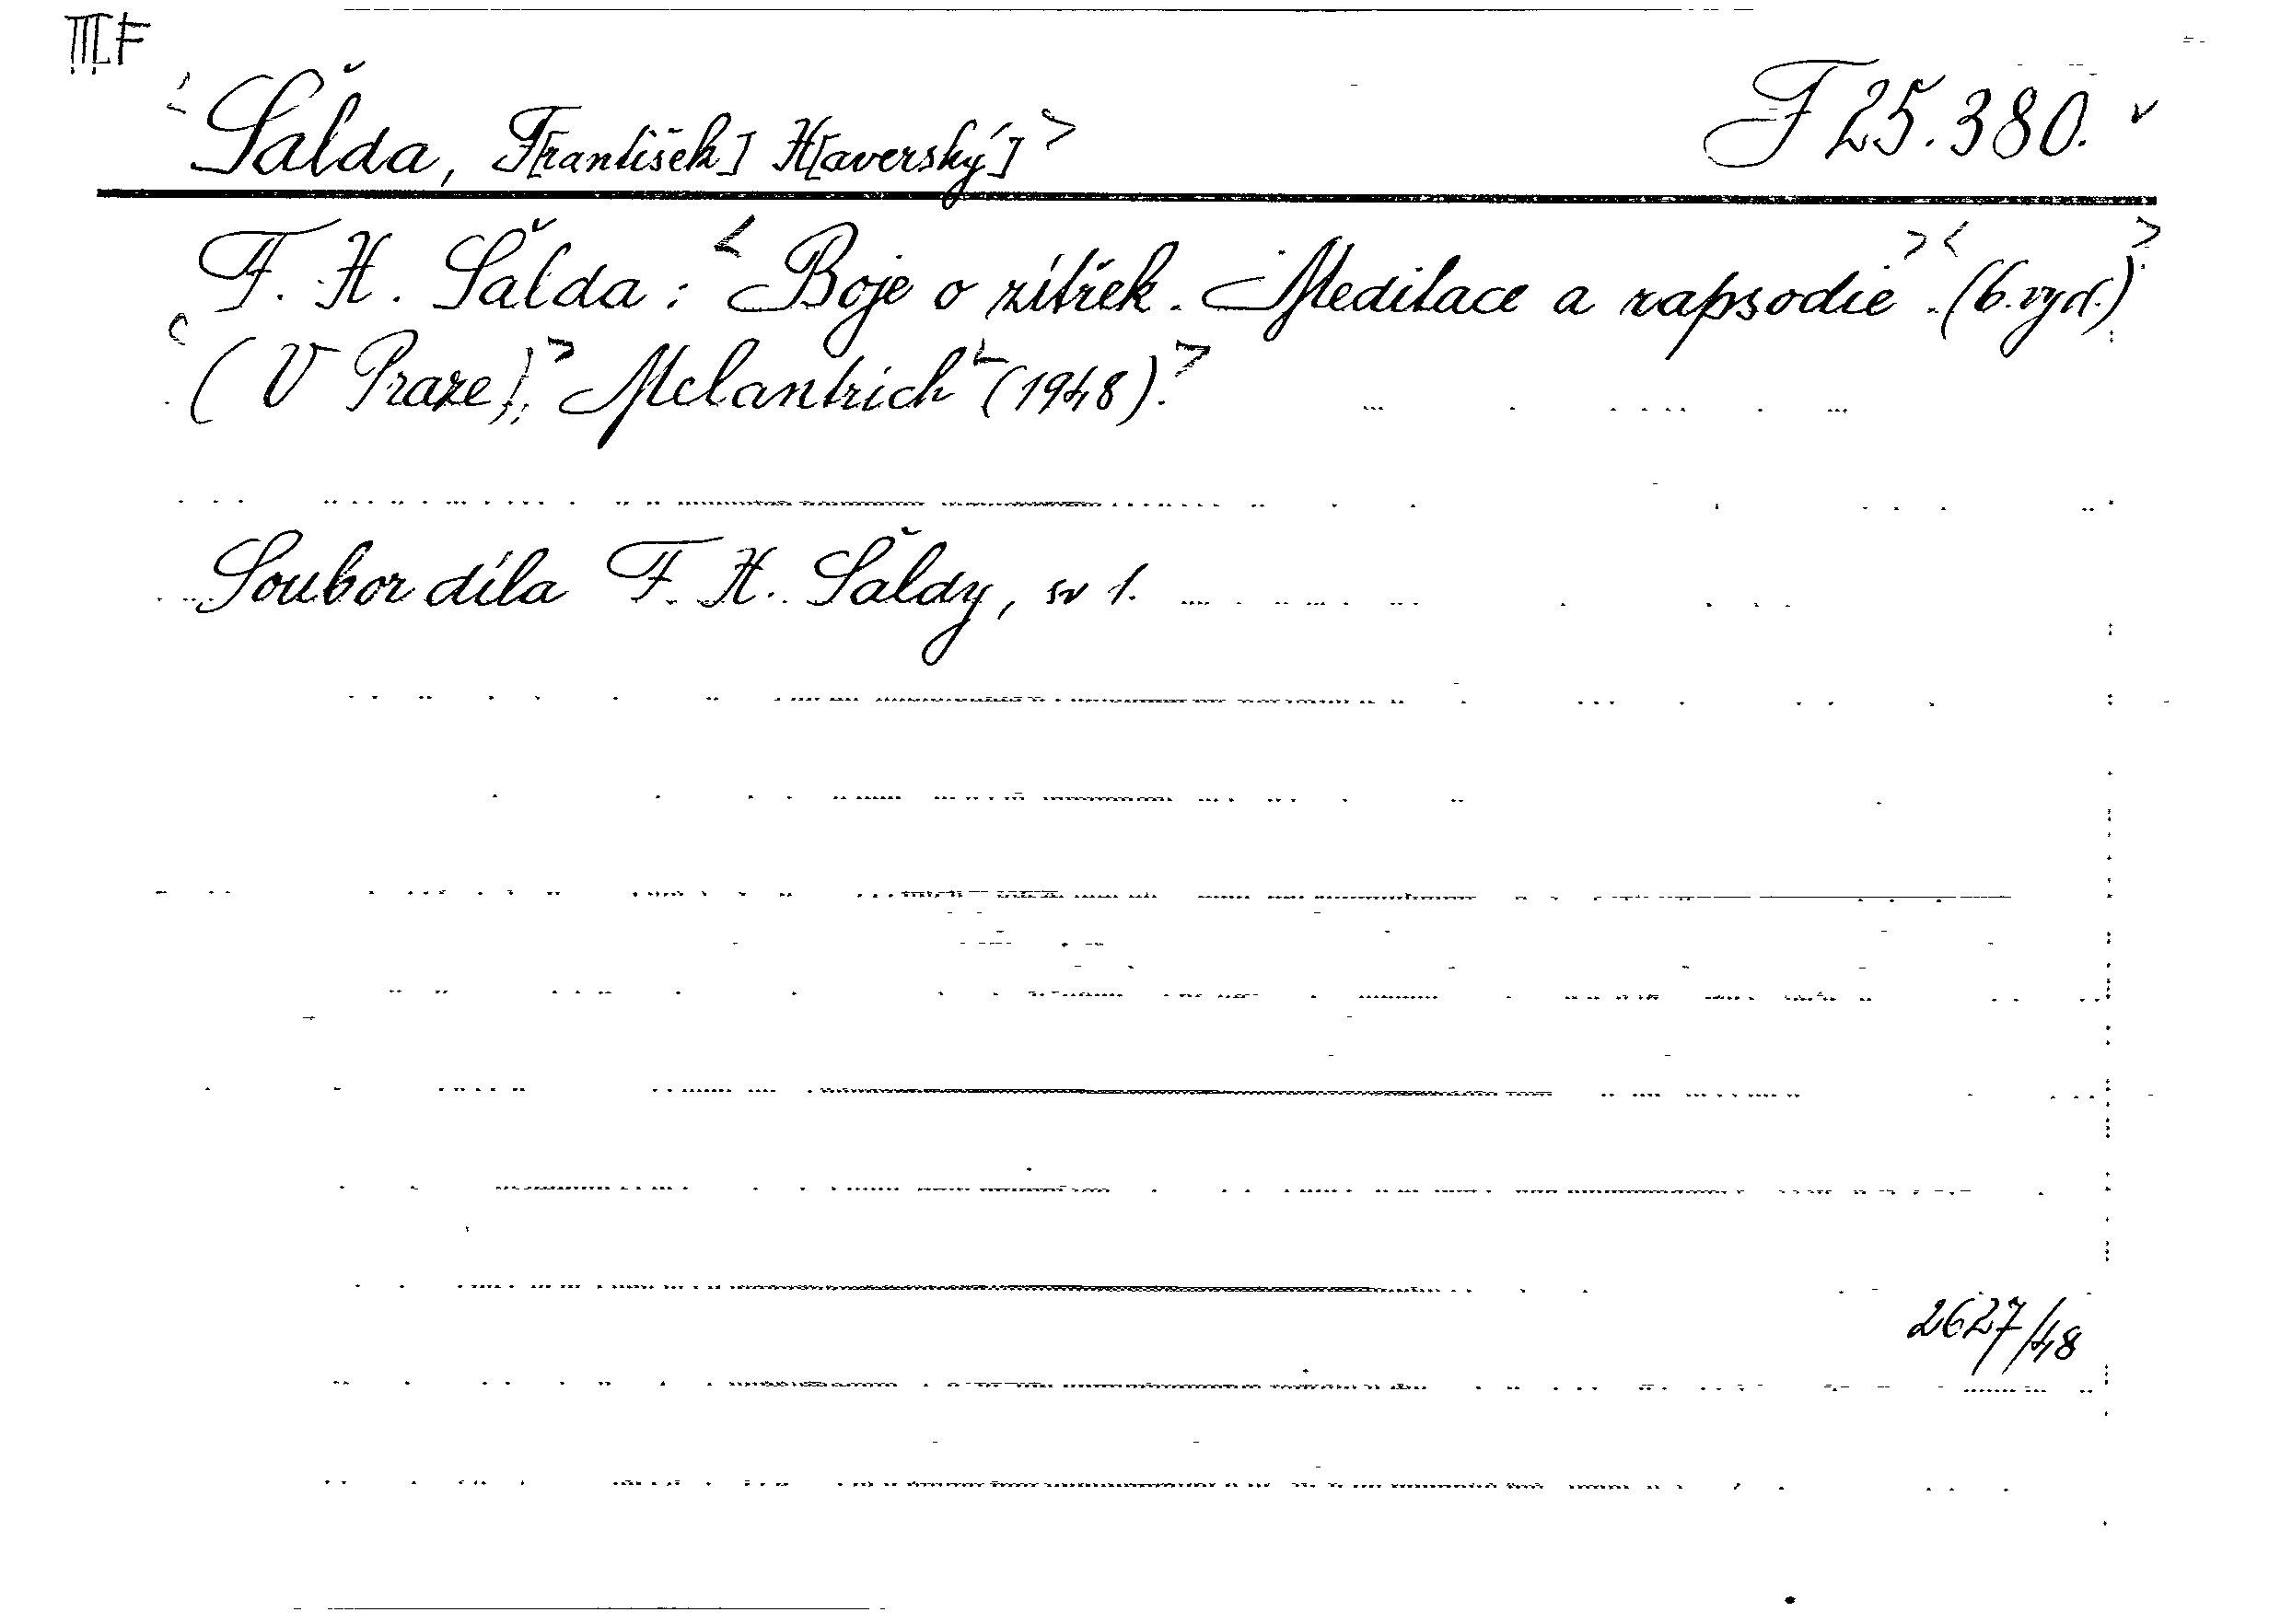 III F
<Šalda, F[rantišek] H[averský]> F 25.380. v
F. H. Šalda: <Boje o zítřek. Meditace a rapsodie>. <(6. vyd.)>
<(V Praze),> Melantrich <(1948).>
Soubor díla F. H. Šaldy, sv 1.
2627/48